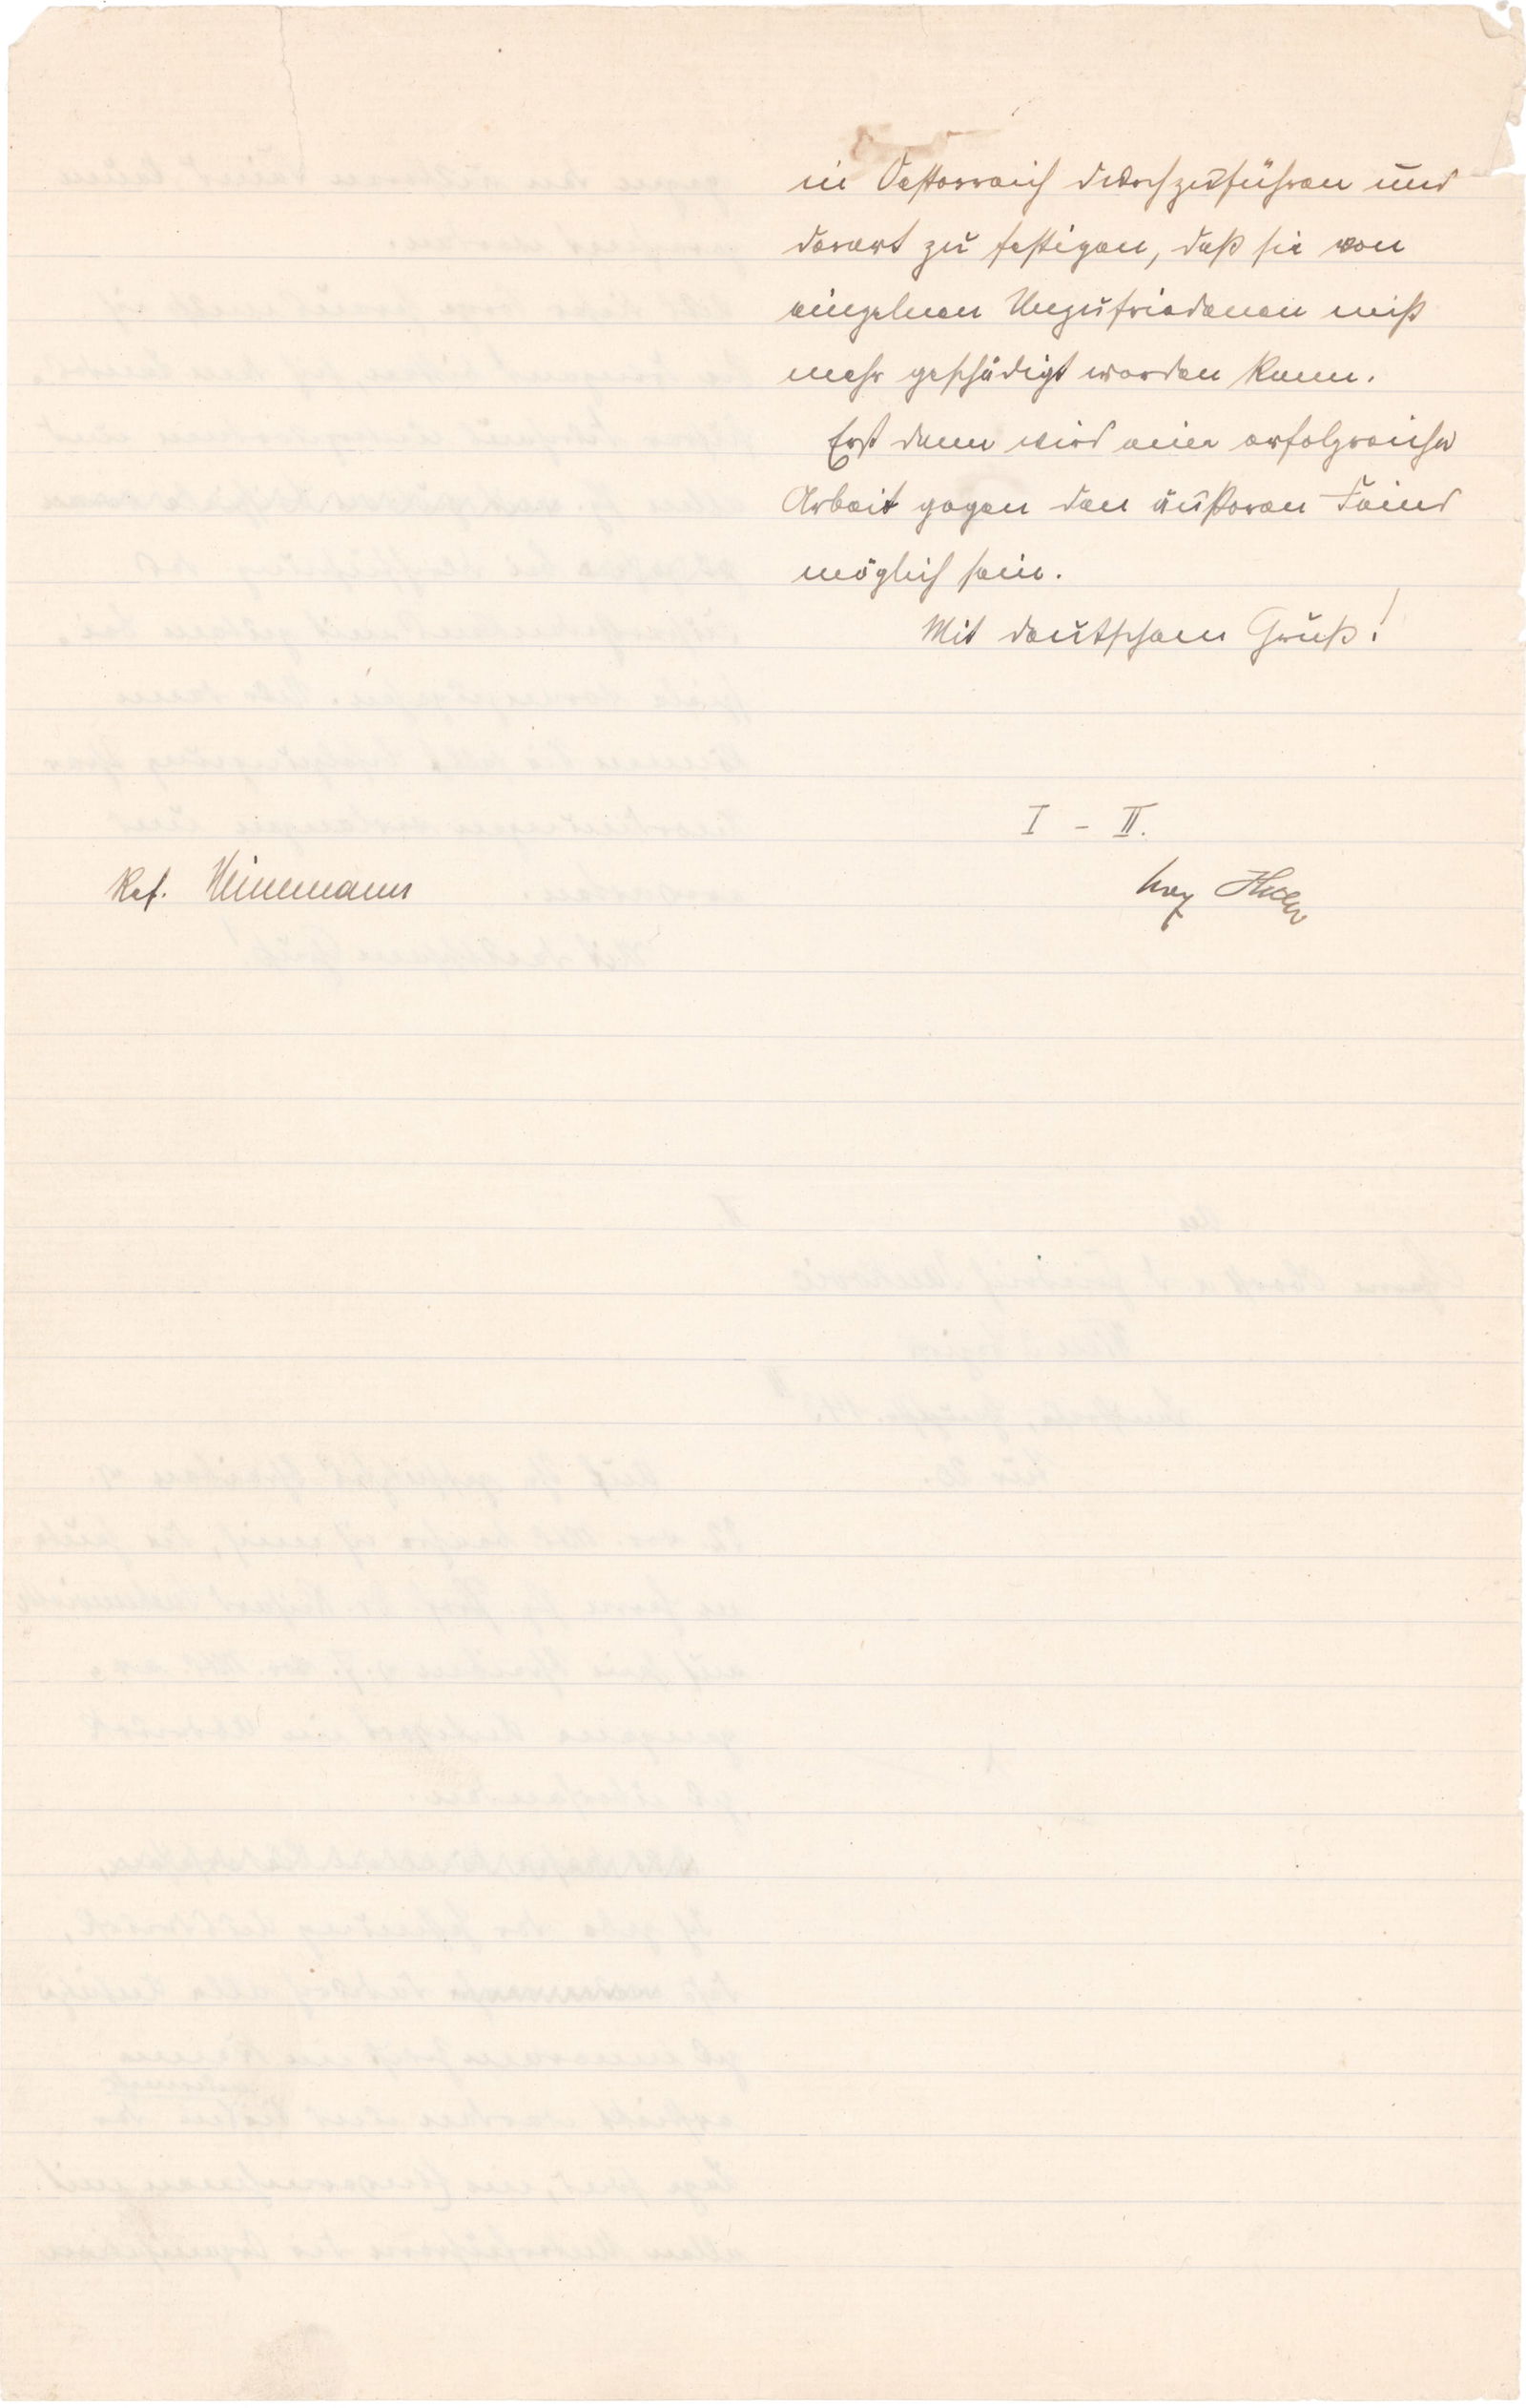 in Oesterreich durchzuführen und
derart zu festigen, daß sie von
einzelnen Unzufriedenen nicht
mehr geschädigt werden kann.
Erst dann wird eine erfolgreiche
Arbeit gegen den äußeren Feind
möglich sein.
Mit deutschem Gruß!
I - II.
Ref. Heinemann